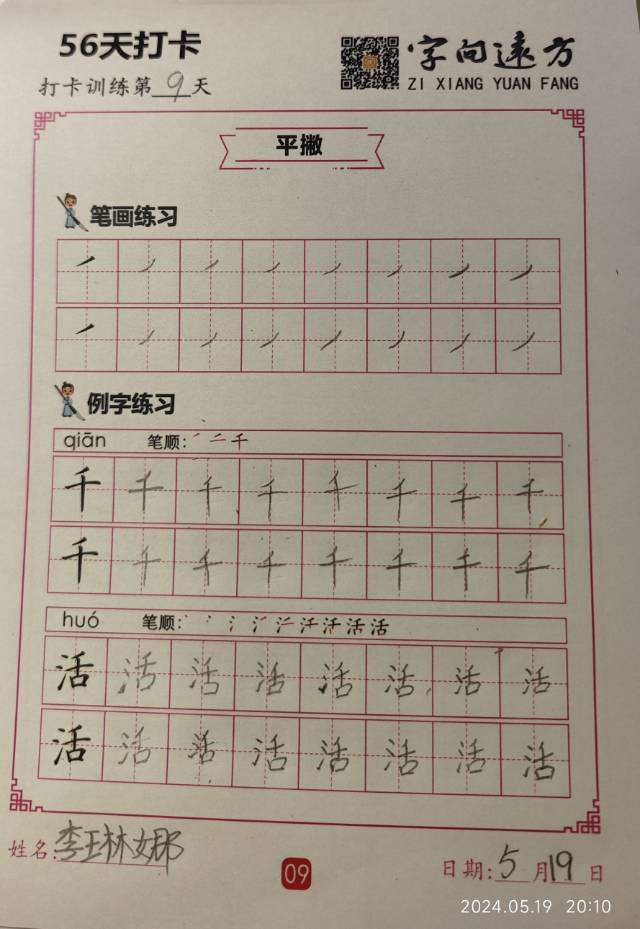 56天打卡
字向遠方
打卡训练第9天
ZI XIANG YUAN FANG
平撇
笔画练习
例字练习
qiān 笔顺: 一 二 千
千 千 千 千 千 千 千 千
千 千 千 千 千 千 千 千
huó 笔顺: 活
活 活 活 活 活 活 活 活
活 活 活 活 活 活 活 活
姓名:李玨林娜
09
日期:5月19日
2024.05.19 20:10